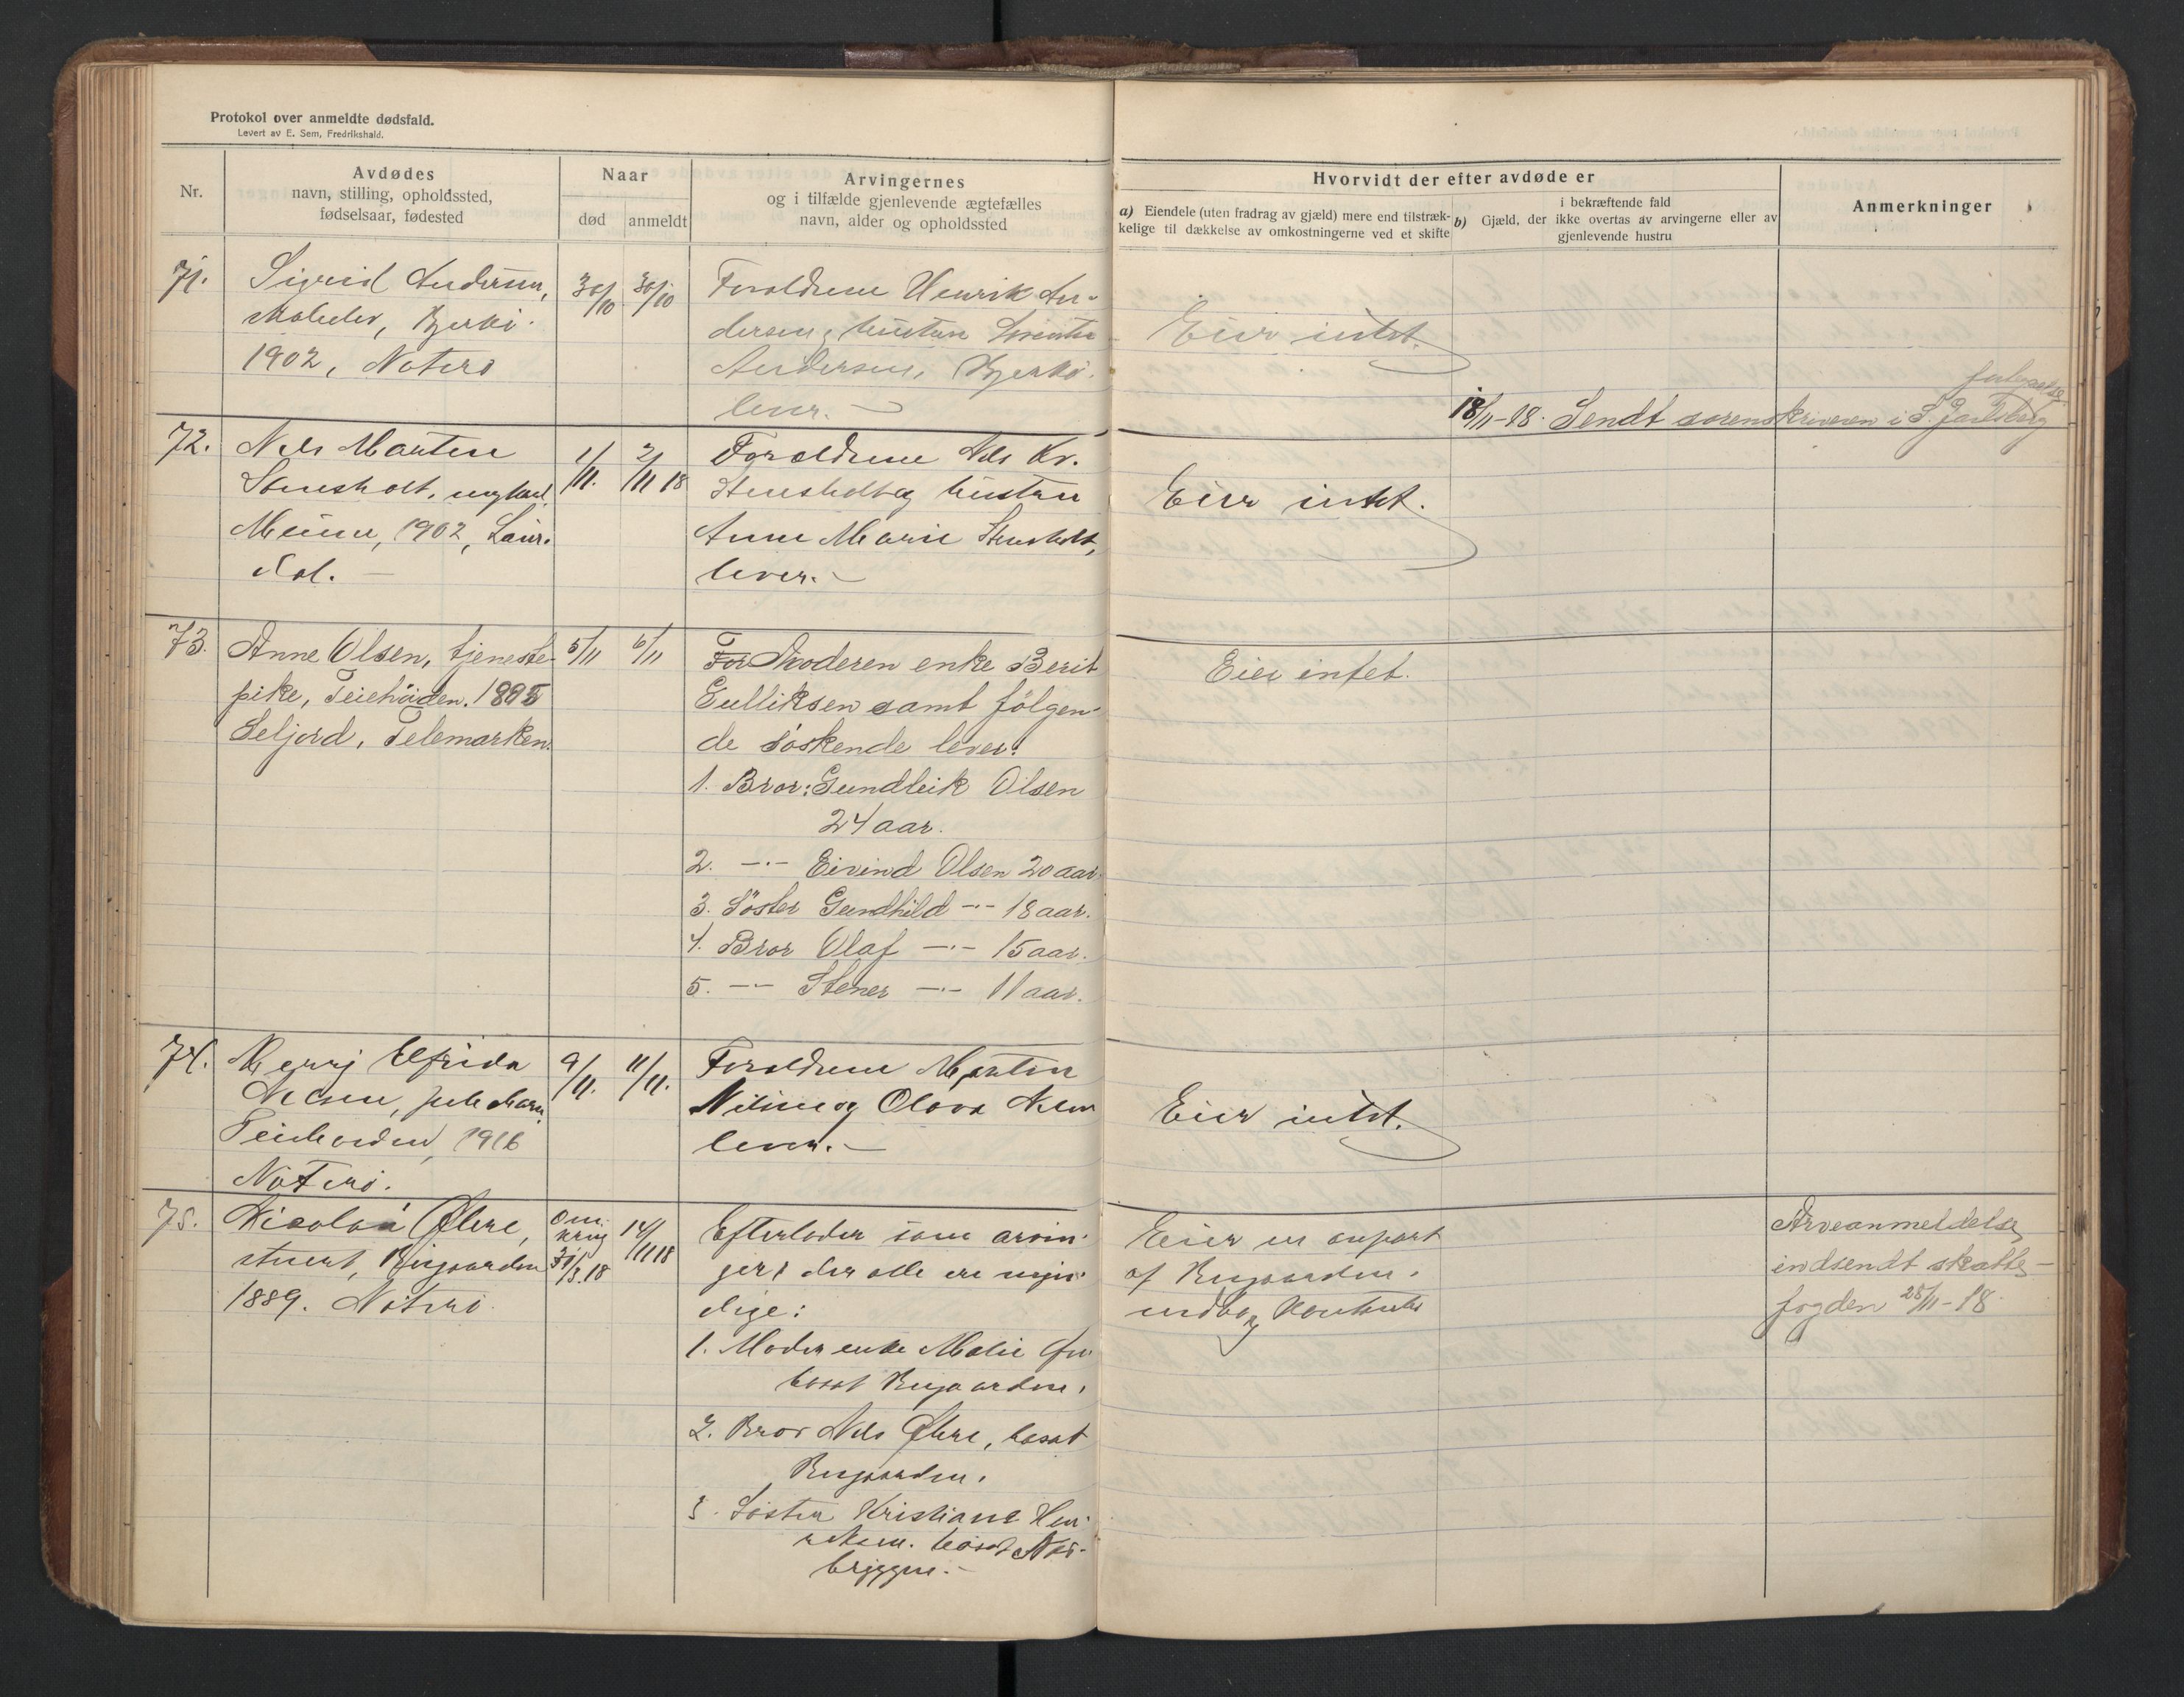 Protokol over anmeldte dødsfald.
Levert av E. Sem, Fredrikshald.
Nr.
Avdødes
navn, stilling, opholdssted,
fødselsaar, fødested
Naar
død
anmeldt
Arvingernes
og i tilfælde gjenlevende ægtefælles
navn, alder og opholdssted
Hvorvidt der efter avdøde er
a) Eiendele (uten fradrag av gjæld) mere end tilstræk-
kelige til dækkelse av omkostningerne ved et skifte
i bekræftende fald
b) Gjæld, der ikke overtas av arvingerne eller av
gjenlevende hustru
Anmerkninger
71.
Sigrid Andersen,
skoleelev, Bjerkø.
1902, Nøterø
30/10
30/10
Forældrene Henrik An-
dersen og hustru
Andersen, Bjerkø.
lever. —
Eier intet.
18/11-18. Sendt sorenskriveren i S. Jarlsberg
72.
Nels Martin
Stensholt, ungkarl
1902, Laur-
dal. —
1/11.
2/11 18
Forældrene Nils Kr.
Stensholt og hustru
Anne Marie Stensholt,
lever. —
Eier intet.
73.
Anne Olsen, tjeneste-
pike, Teiehöiden. 1895
Seljord, Telemarken.
5/11
6/11
For Moderen enke Berit
Gulliksen samt følgen-
de söskende lever:
1. Bror: Gundleik Olsen
24 aar.
2. —·— Eivind Olsen 20 aar.
3. Söster Gundhild —·— 18 aar.
4. Bror Olaf —·— 15 aar.
5. —·— Stener —·— 11 aar.
Eier intet.
74.
Elfrida
Nilsen, pikebarn
Teiehøiden, 1916
Nøterø.
9/11.
11/11.
Forældrene Martin
Nilsen og Olava Nilsen
lever. —
Eier intet.
75.
Nicolai Øhre,
stuert, Bergaarden
1889. Nøterø.
Om-
kring
31/3.18
14/11 18
Efterlader som arvin-
ger, der alle er myn-
dige:
1. Moder enke Malie
bosat Bergaarden,
2. Bror Nils Øhre, bosat
Bergaarden,
3. Søster Kristiane Hen-
riksen. bosat Nes-
bryggen. —
Eier en anpart
af Bergaarden,
indbo og kontanter
Arveanmeldelse
indsendt skatte-
fogden 28/11-18